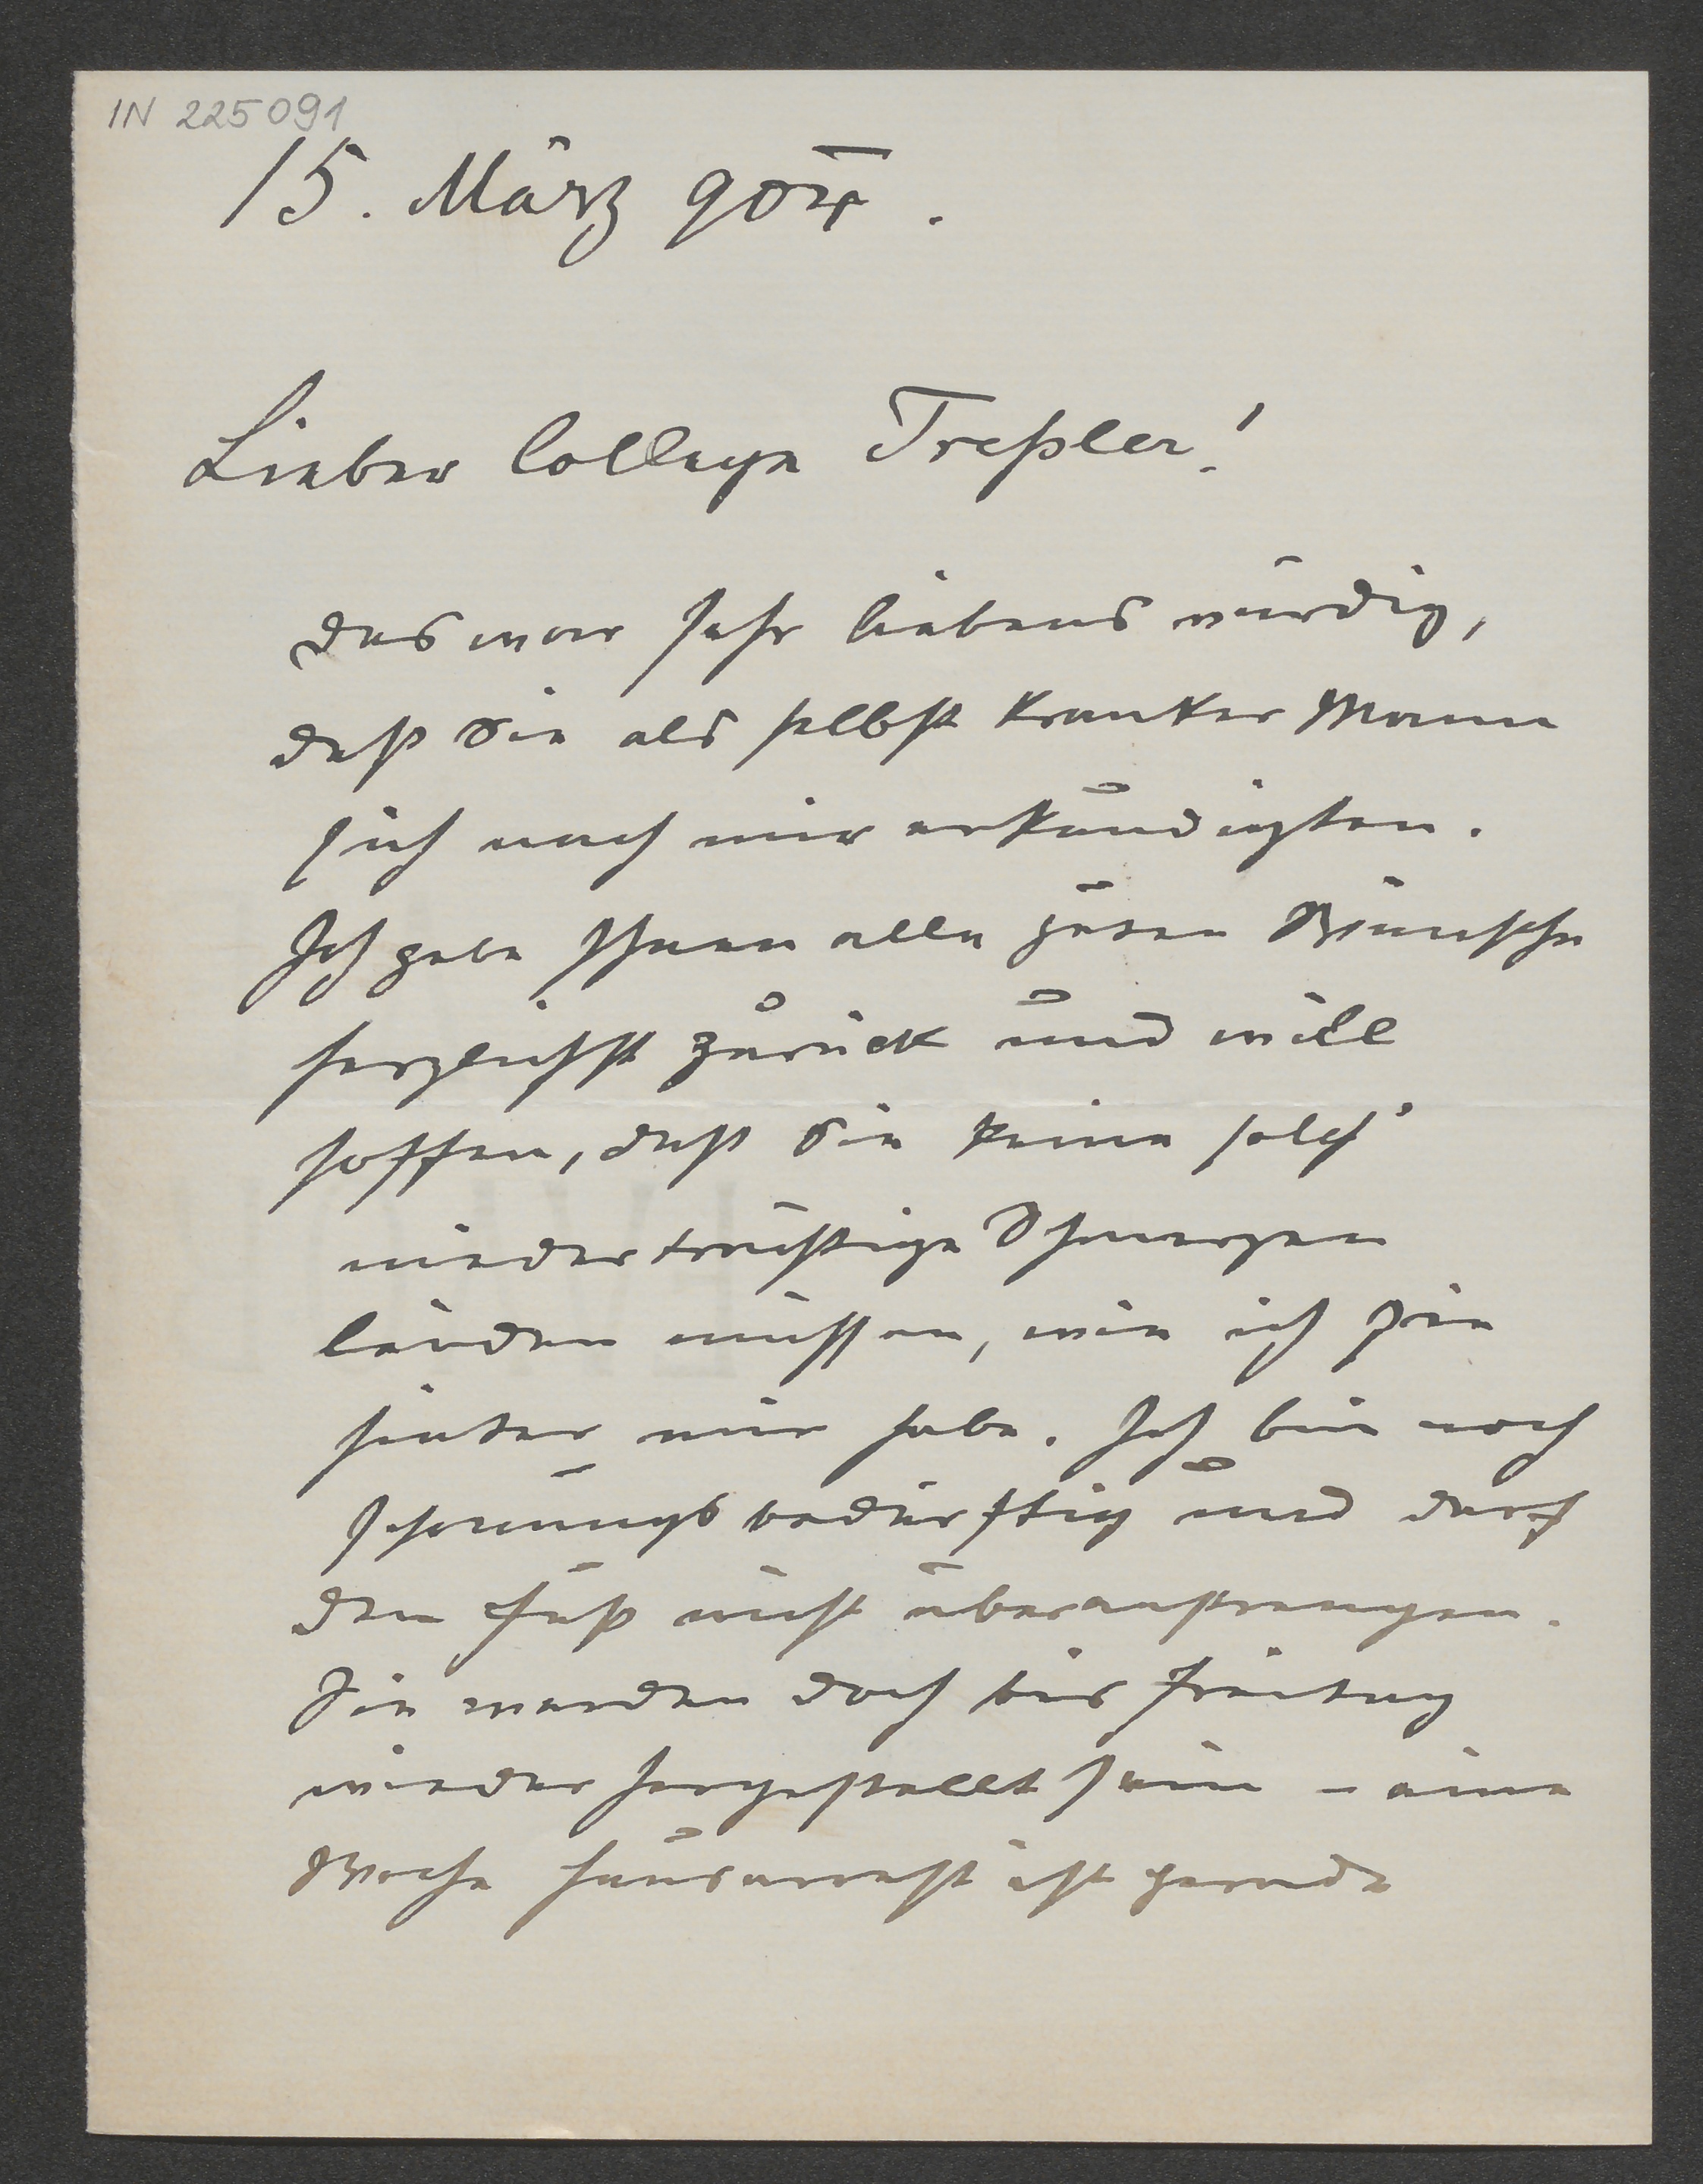 IN 225091
15. März 904.
Lieber College Treßler!
das war sehr liebens würdig,
daß Sie als selbst kranker Mann
sich nach mir erkundigten.
Ich gebe Ihnen alle guten Wünsche
herzlichst zurück und will
hoffen, daß Sie keine solch'
niederträchtige Schmerzen
leiden müssen, wie ich sie
hinter mir habe. Ich bin noch
schonungsbedürftig und darf
den Fuß nicht überanstrengen.
Sie werden doch bis Freitag
wieder hergestellt sein – eine
Woche Hausarrest ist gerade